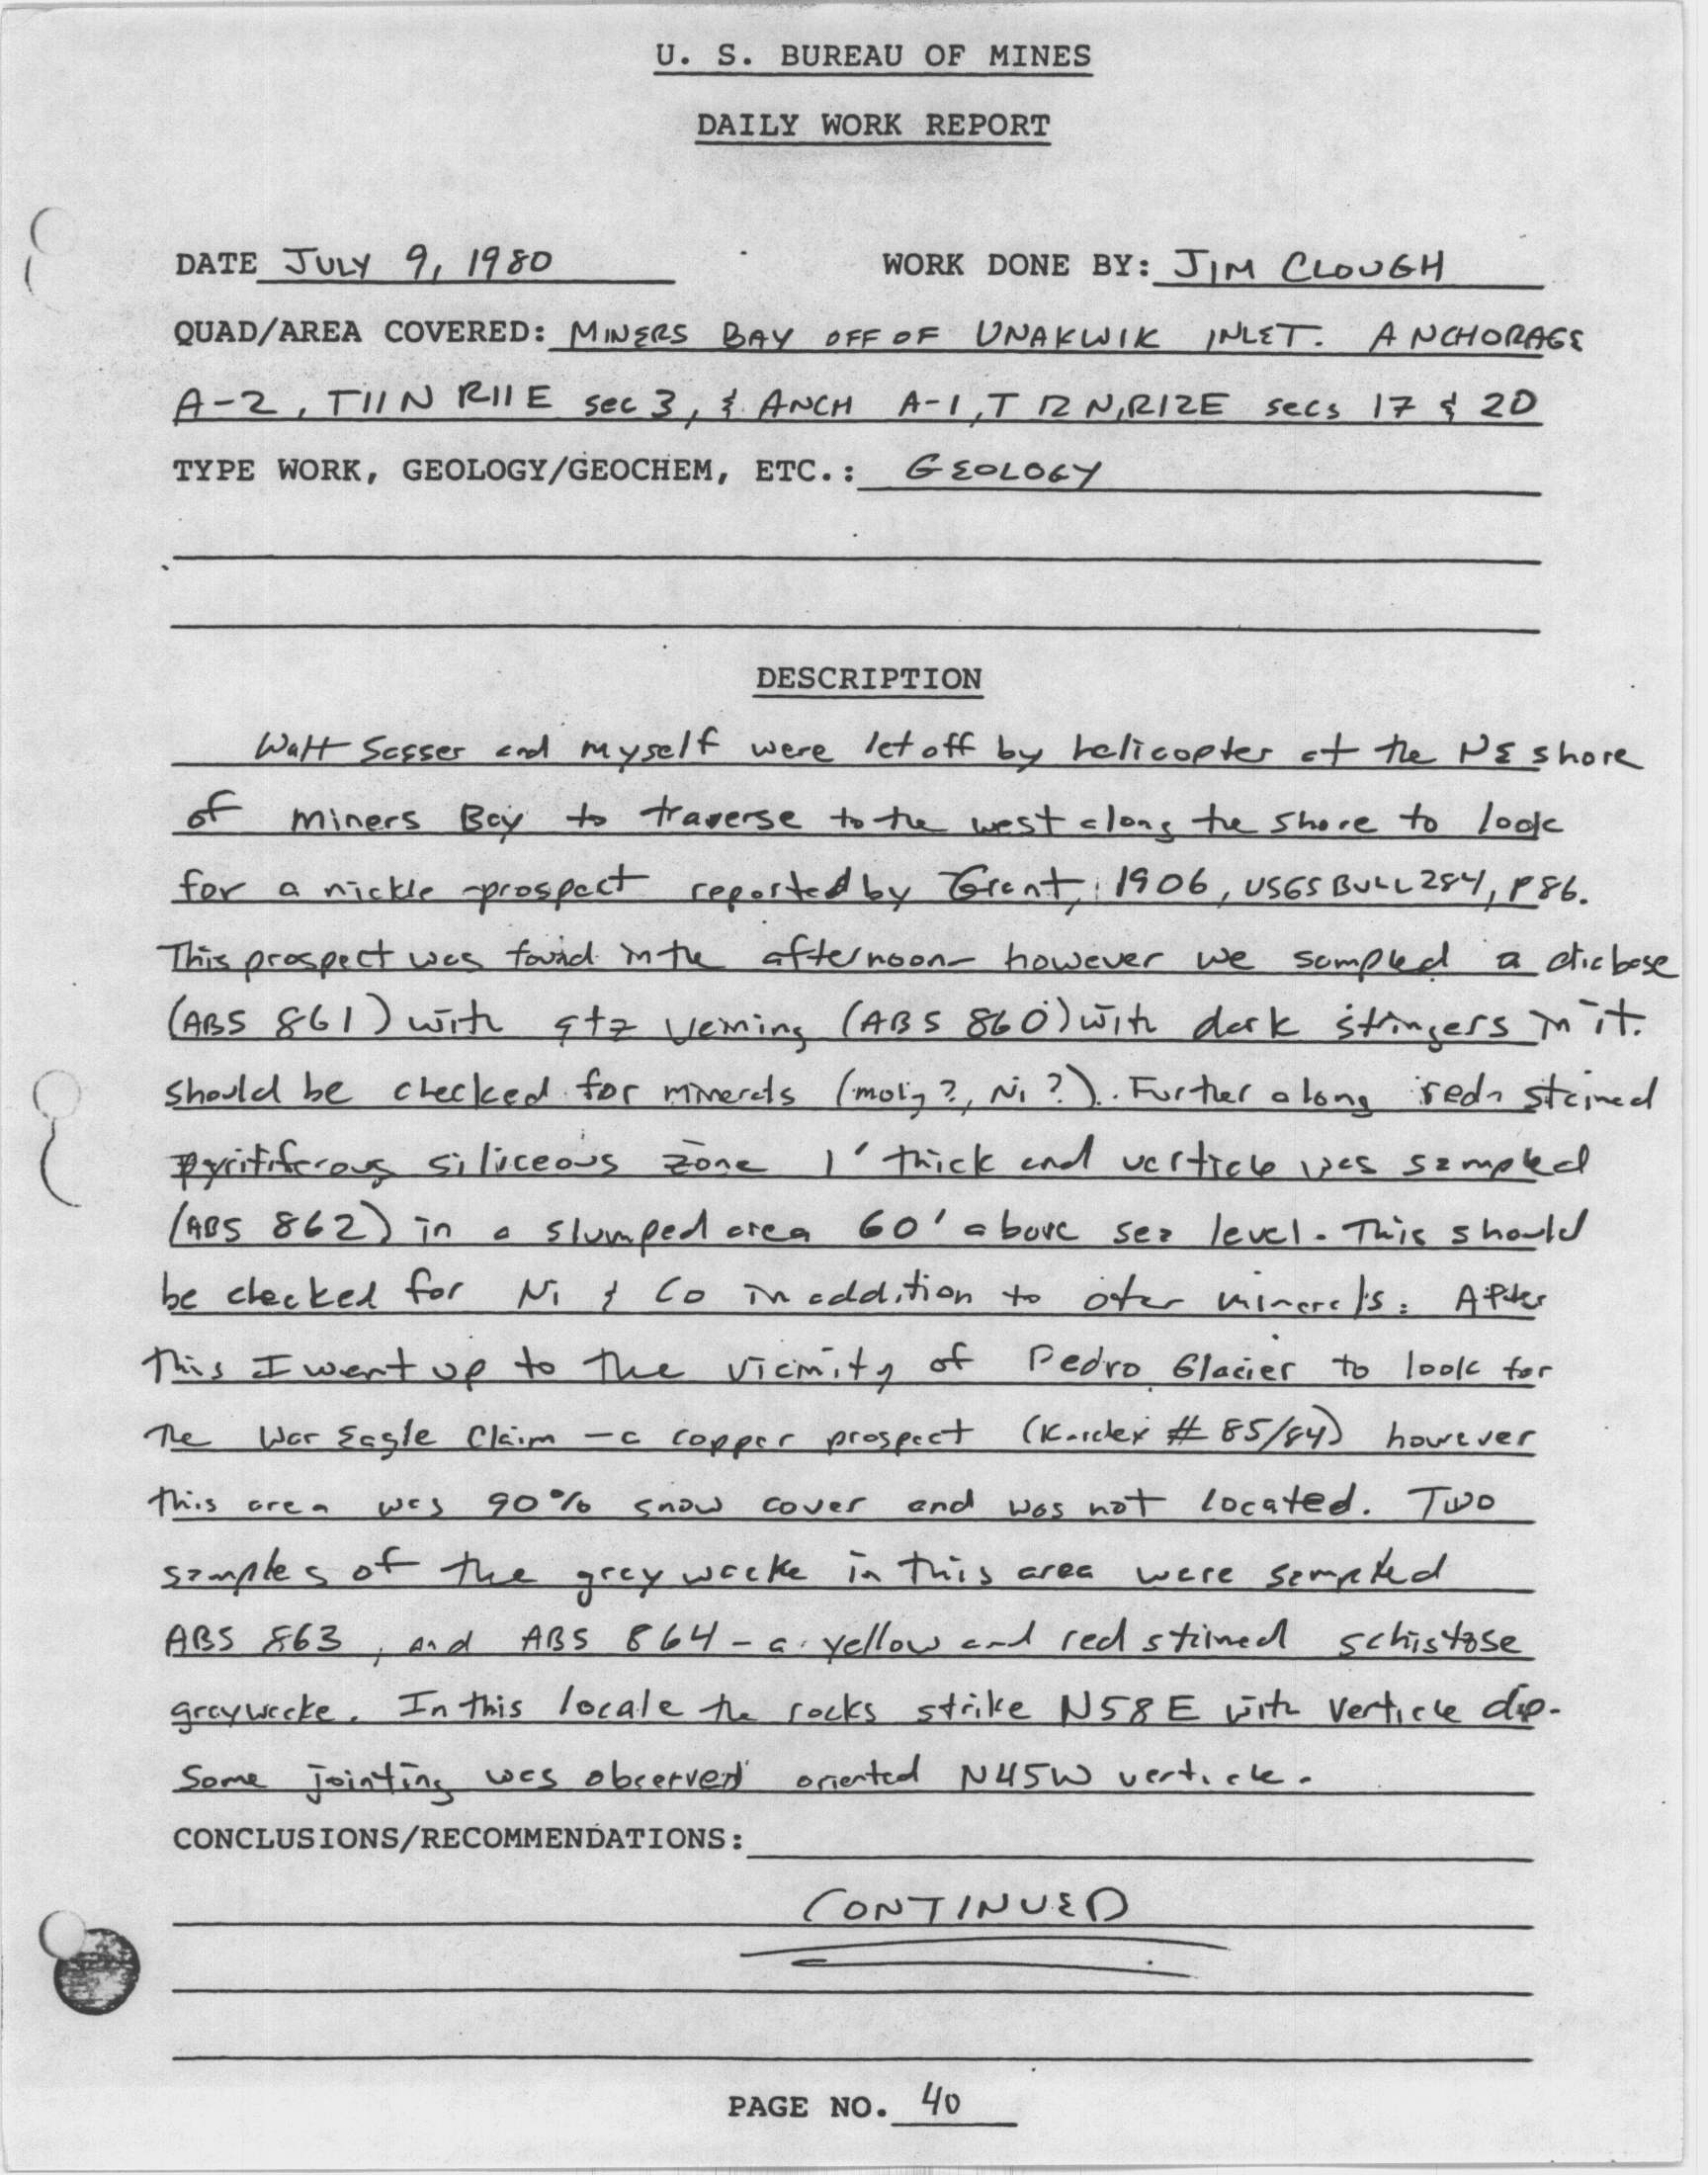 U. S. BUREAU OF MINES
DAILY WORK REPORT
DATE JULY 9, 1980 WORK DONE BY: JIM CLOUGH
QUAD/AREA COVERED: MINERS BAY OFF OF UNAKWIK INLET. ANCHORAGE
A-2, T11N R11E sec 3, & ANCH A-1, T12N, R12E secs 17 & 20
TYPE WORK, GEOLOGY/GEOCHEM, ETC.: GEOLOGY
DESCRIPTION
Walt Sasser and myself were let off by helicopter at the NE shore
of Miners Bay to traverse to the west along the shore to look
for a nickle prospect reported by Grant, 1906, USGS BULL 284, P 86.
This prospect was found in the afternoon - however we sampled a diabase
(ABS 861) with qtz veining (ABS 860) with dark stringers in it.
should be checked for minerals (moly?, Ni?). Further along red stained
pyritiferous siliceous zone 1' thick and verticle was sampled
(ABS 862) in a slumped area 60' above sea level. This should
be checked for Ni & Co in addition to other minerals. After
this I went up to the vicinity of Pedro Glacier to look for
the War Eagle Claim - a copper prospect (Kardex # 85/84) however
this area was 90% snow cover and was not located. Two
samples of the greywacke in this area were sampled
ABS 863, and ABS 864 - a yellow and red stained schistose
graywacke. In this locale the rocks strike N58E with verticle dip.
Some jointing was observed oriented N45W verticle.
CONCLUSIONS/RECOMMENDATIONS:
CONTINUED
PAGE NO. 40